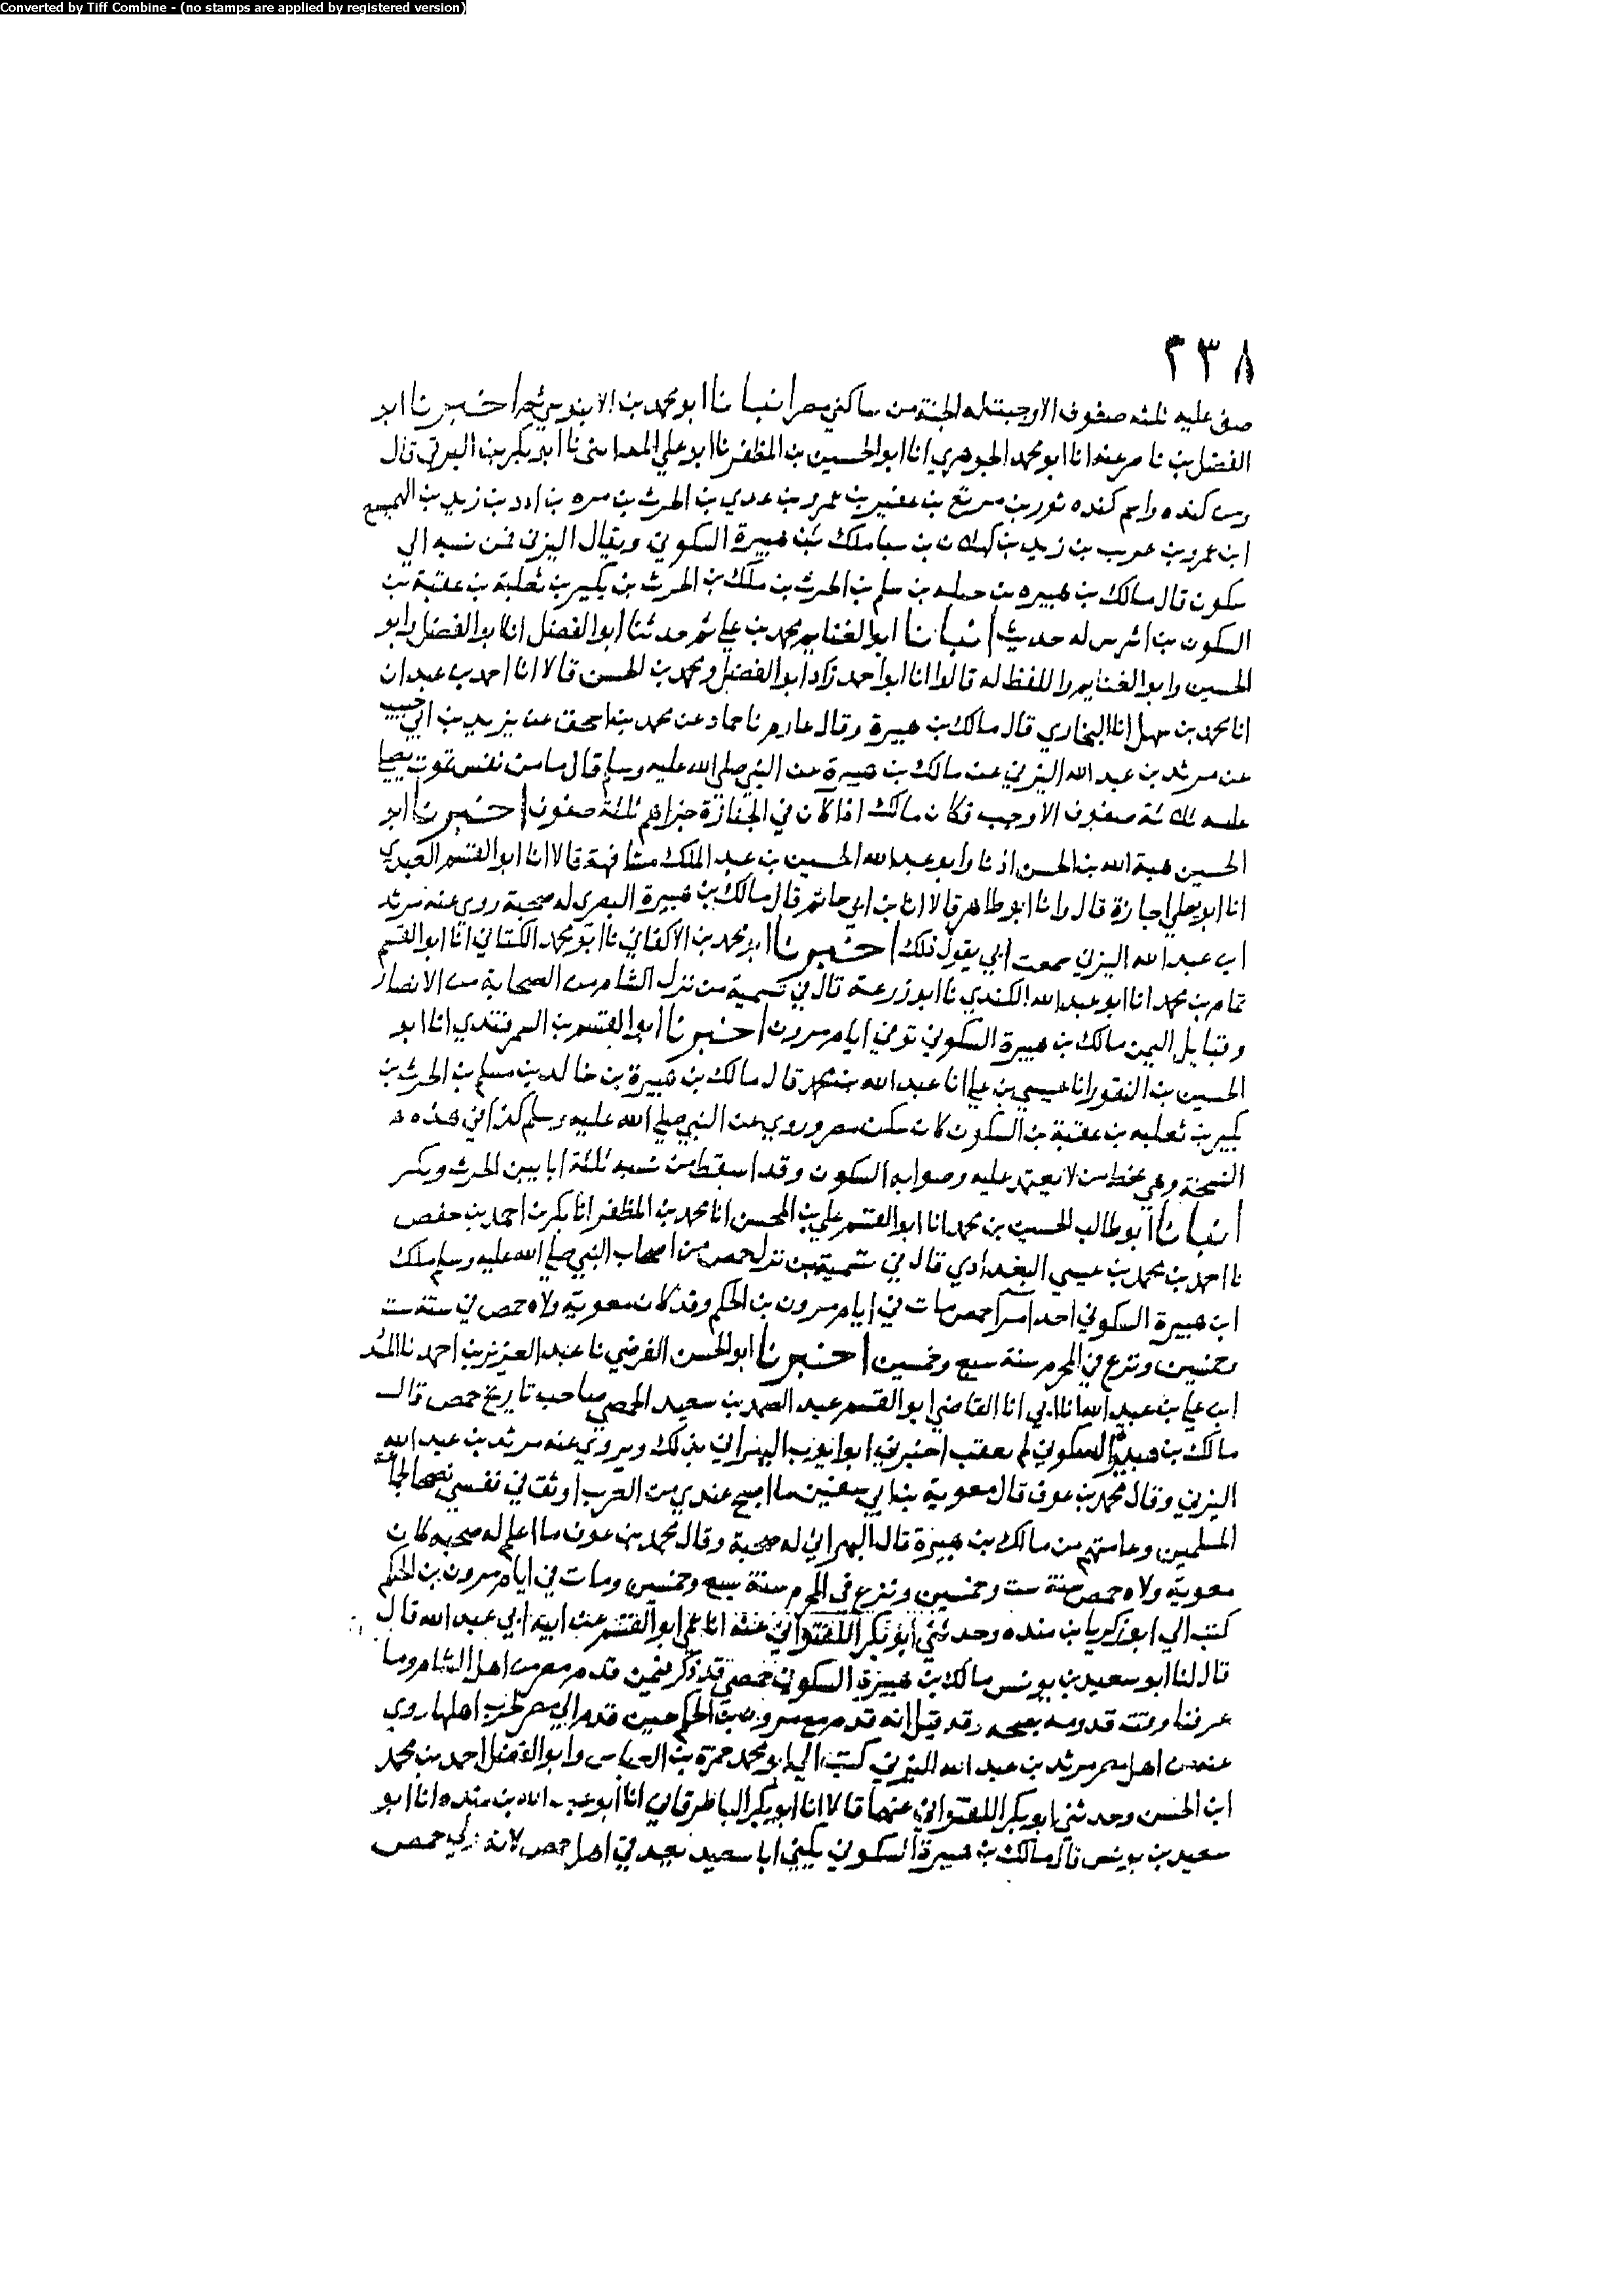 Converted by Tiff Combine - (no stamps are applied by registered version)
٢٣٨
صفى عليه ثلثه صفوف الا وجبت له الجنة من ساكني مصر انبانا ابو محمد بن الابنوسي ثم اخبرنا ابو
الفضل بن ناصر عنه انا ابو محمد الجوهري انا ابو الحسين بن المظفر نا ابو علي المدايني نا ابو بكر بن البرقي قال
ومن كنده واسم كنده ثور بن مرتع بن عفير بن عمرو بن عدي بن الحرث بن مره بن ادد بن زيد بن الهميسع
ابن عمرو بن عريب بن زيد بن كهلان بن سبا ملك بن هبيرة السكوني ويقال اليزني فمن نسبه الي
سكون قال مالك بن هبيره بن سلم بن الحرث بن ملك بن الحرث بن بكير بن ثعلبة بن عقبة بن
السكون بن اشرس له حديث انبانا ابو الغنايم محمد بن علي ثم حدثنا ابو الفضل انا ابو الفضل وابو
الحسين وابو الغنايم واللفظ له قالوا انا ابو احمد زاد ابو الفضل ومحمد بن الحسن قالا انا احمد بن عبدان
انا محمد بن سهل انا البخاري قال مالك بن هبيرة وقال عارم نا حماد عن محمد بن اسحق عن يزيد بن ابي حبيب
عن مرثد بن عبد الله اليزني عن مالك بن هبيرة عن النبي صلى الله عليه وسلم قال ما من نفس تموت يصلي
عليه ثلاثة صفوف الا وجب فكان مالك اذا كان في الجنازة جزاهم ثلثة صفوف اخبرنا ابو
الحسين هبة الله بن الحسن اذنا وابو عبد الله الحسين بن عبد الملك مشافهة قالا انا ابو القسم العبدي
انا ابو علي اجازة قال وانا ابو طاهر قالا انا بن ابي حاتم قال مالك بن هبيرة البصري له صحبة روي عنه مرثد
ابن عبد الله اليزني سمعت ابي يقول ذلك اخبرنا ابو محمد بن الاكفاني نا ابو محمد الكتاني انا ابو القسم
تمام بن محمد انا ابو عبد الله الكندي نا ابو زرعة قال في تسمية من نزل الشام من الصحابة من الانصار
وقبايل اليمن مالك بن هبيرة السكوني توفي ايام مرون اخبرنا ابو القسم بن السمرقندي انا ابو
الحسين بن النقور انا عيسي بن علي انا عبد الله بن محمد قال مالك بن هبيرة بن خالد بن مسلم بن الحرث بن
بكير بن ثعلبه بن عقبة بن السكون كان سكن مصر وروي عن النبي صلي الله عليه وسلم كذا في هذه
النسخة وهي بخط من لا يعتمد عليه وصوابه السكون وقد اسقط من نسبه ثلثة ابا بين الحرث وبكر
انبانا ابو طالب الحسين بن محمد انا ابو القسم علي بن المحسن انا محمد بن المظفر انا بكر بن احمد بن حفص
نا احمد بن محمد بن عيسي البغدادي قال في تسمية من نزل حمص من اصحاب النبي صلي الله عليه وسلم ملك
ابن هبيرة السكوني احد امرا حمص مات في ايام مرون بن الحكم وقد كان معوية ولاه حمص في سنة ست
وخمسين ونزع في المحرم سنة سبع وخمسين اخبرنا ابو الحسن الفرضي نا عبد العزيز بن احمد نا
ابن علي بن عبيد الله نا ابي انا القاضي ابو القسم عبد الصمد بن سعيد الحمصي صاحب تاريخ حمص قال
مالك بن هبيرة السكوني لم يعقب اخبرني ابو ايوب البهراني بذلك ويروي عنه مرثد بن عبد الله
اليزني وقال محمد بن عوف قال معوية بن ابي سفين ما اصبح عندي من العرب اوثق في نفسي نصحا لجماعة
المسلمين وعامتهم من مالك بن هبيرة قال البهراني له صحبة وقال محمد بن عوف ما اعلم له صحبه كان
معوية ولاه حمص سنة ست وخمسين ونزع في المحرم سنة سبع وخمسين ومات في ايام مرون بن الحكم
كتب الي ابو زكريا بن منده وحدثني ابو بكر اللفتواني عنه انا عمي ابو القسم عن ابيه ابي عبد الله قال
قال لنا ابو سعيد بن يونس مالك بن هبيرة السكوني حمصي قد ذكر فيمن قدم مصر من اهل الشام وما
عرفنا وقت قدومه بصحه وقد قيل انه قدم مع مرون بن الحكم حين قدم الي مصر لحرب اهلها روي
عنه من اهل مصر مرثد بن عبد الله اليزني كتب الي ابو محمد حمزة بن العباس وابو الفضل احمد بن محمد
ابن الحسن وحدثني ابو بكر اللفتواني عنهما قالا انا ابو بكر الباطرقاني انا ابو عبد الله بن منده انا ابو
سعيد بن يونس قال مالك بن هبيرة السكوني يكني ابا سعيد يعد في اهل حمص لانه ولي حمص